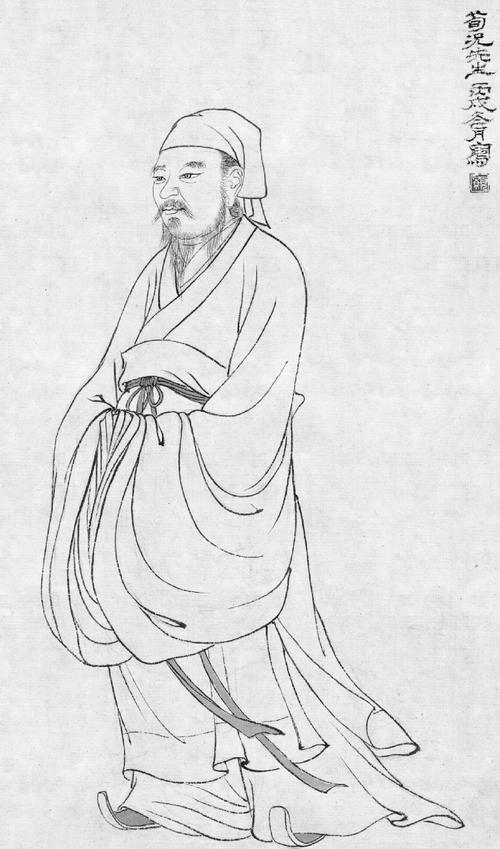 荀况先生 丙戌冬月寫